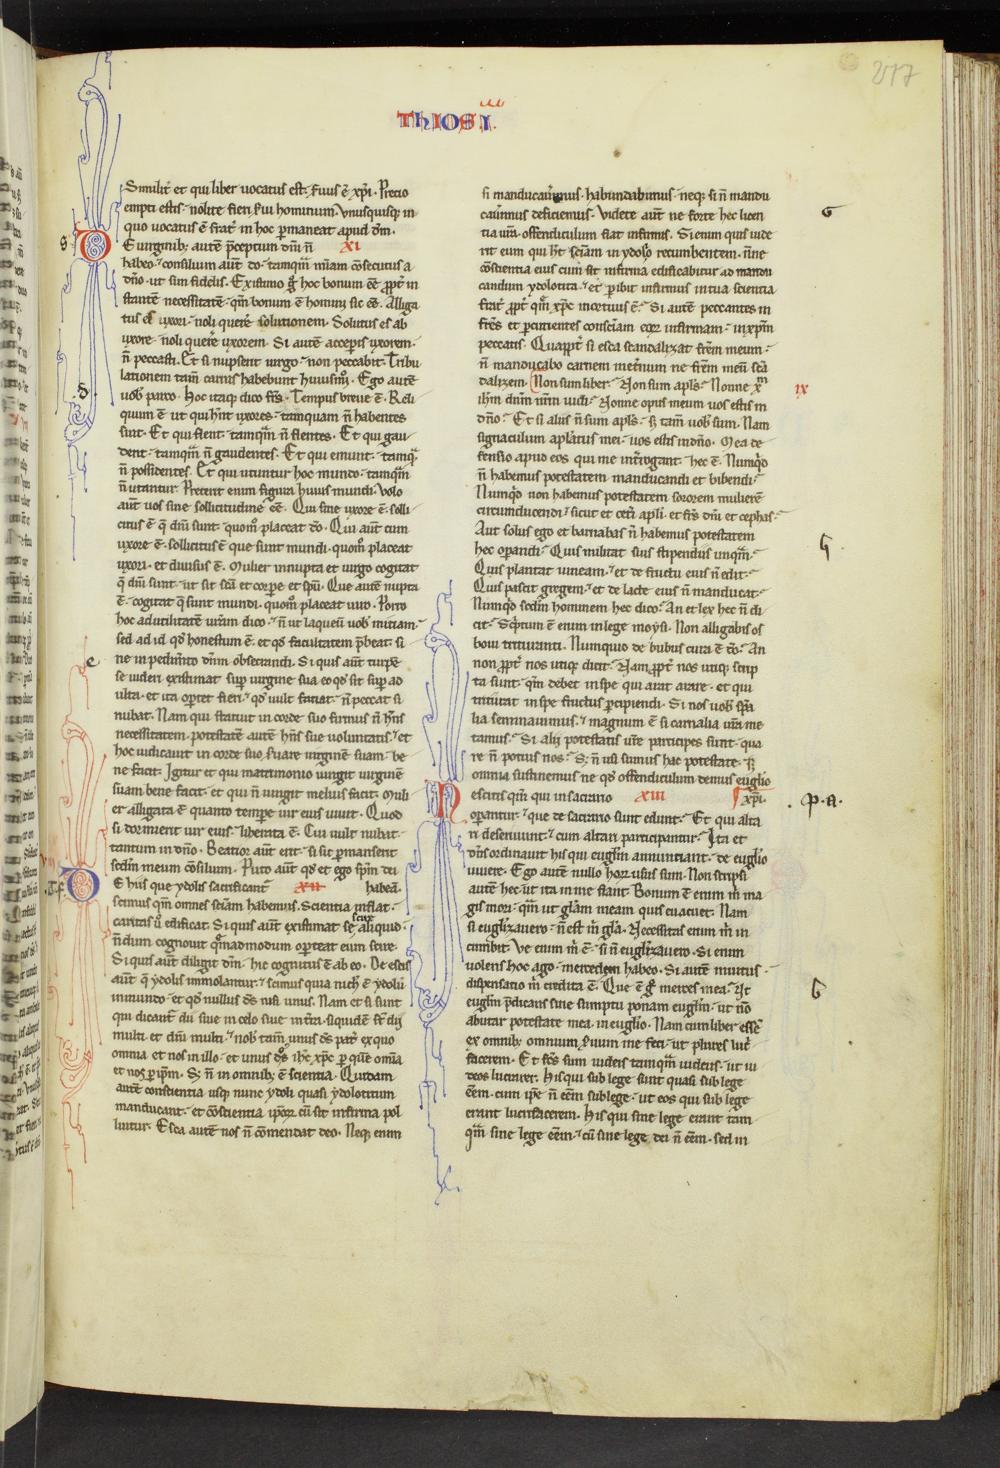 217
THIOS I
Similit et qui liber uocatus est, seruus ē xpi. Precio
empti estis, nolite fieri serui hominum. Vnusquisq in
quo uocatus ē fratr in hoc pmaneat apud dm.
D E uirginib; autē pceptum dni n̄ XI
habeo, consilium aut do, tamqm misam cōsecutus a
dn̄o ut sim fidelis. Existimo g hoc bonum ēe ppt in
stantē necessitatē, qm bonum ē homini sic ēe. Alliga
tus es uxori, noli querere solutionem. Solutus es ab
uxore, noli querere uxorem. Si autē acceperis uxorem,
n̄ peccasti. Et si nupserit uirgo, non peccabit. Tribu
lationem tam carnis habebunt huiusmoi. Ego autē
uob parco. Hoc itaq dico frs. Tempus breue ē. Reli
quum ē ut qui hnt uxores, tamquam n̄ habentes
sint. Et qui flent, tamqm n̄ flentes. Et qui gau
dent, tamqm n̄ gaudentes. Et qui emunt, tamq
n̄ possidentes. Et qui utuntur hoc mundo, tamqm
n̄ utantur. Preterit enim figura huius mundi. Volo
aut uos sine sollicitudine ēe. Qui sine uxore ē, solli
citus ē q dni sunt, quom placeat do. Qui aut cum
uxore ē, sollicitus ē que sunt mundi, quom placeat
uxori, et diuisus ē. Mulier innupta et uirgo cogitat
q dni sunt, ut sit sca et corpe et spu. Que autē nupta
ē, cogitat q sunt mundi, quom placeat uiro. Porro
hoc ad utilitatē uram dico, n̄ ut laqueū uob iniciam,
sed ad id qd honestum ē, et qd facultatem pbeat, si
ne inpedimto dnm obsecrandi. Si quis aut turpē
se uideri existimat sup uirgine sua eo qd sit sup ad
ulta, et ita oportet fieri, qd uult faciat, n̄ peccat si
nubat. Nam qui statuit in corde suo firmus n̄ hns
necessitatem, potestatē autē hns sue uoluntatis, et
hoc iudicauit in corde suo seruare uirginē suam, be
ne facit. Igitur et qui matrimonio iungit uirginē
suam bene facit, et qui n̄ iungit melius facit. Muli
er alligata ē quanto tempe uir eius uiuit. Quod
si dormierit uir eius, liberata ē. Cui uult nubat,
tantum in dn̄o. Beatior aut erit, si sic pmanserit
sedm meum cōsilium. Puto aut qd et ego spm dei
D E hiis que ydolis sacrificant XII habeā.
scimus qm omnes sciam habemus. Scientia inflat,
caritas u edificat. Si quis aut existimat se scire aliquid,
n̄dum cognouit quēadmodum oporteat eum scire.
Si quis aut diligit dm, hic cognitus ē ab eo. De escis
aut q ydolis immolantur, scimus quia nich ē ydolū
in mundo, et qd nullus ds nisi unus. Nam et si sunt
qui dicant dii siue in celo siue in tra, siquidē st dii
multi, et dni multi, nob tam unus ds pat ex quo
omnia et nos in illo, et unus ds ihc xpc p quē omīa
et nos p ipm. S; n̄ in omnib; ē scientia. Quidam
autē conscientia usq nunc ydoli quasi ydolotitum
manducant, et cōscientia ipor cū sit infirma pol
luitur. Esca autē nos n̄ cōmendat deo. Neq enim
si manducauimus, habundabimus, neq si n̄ mandu
cauimus deficiemus. Videte aut ne forte hec licen
tia ura, offendiculum fiat infirmis. Si enim quis uide
rit eum qui ht sciam in ydolo recumbentem, nne
cōscientia eius cum sit infirma edificabitur ad mandu
candum ydolotita, et peribit infirmus in tua scientia
frat, ppt qm xpc mortuus ē. Si autē peccantes in
frēs et pcutientes consciam eor infirmam, in xpm
peccatis. Quappt si esca scandalizat frēm meum,
n̄ manducabo carnem inetnum ne frēm meū scā
dalizem. Non sum liber. Non sum apls. Nonne xm IX
ihm dnm nrm uidi. Nonne opus meum uos estis in
dn̄o. Et si aliis n̄ sum apls, s; tam uob sum. Nam
signaculum aplatus mei, uos estis in dno. Mea de
fensio apud eos qui me introgant, hec ē. Numqd
n̄ habemus potestatem manducandi et bibendi.
Numqd non habemus potestatem sororem mulierē
circumducendi, sicut et ceti apli, et frs dni et cephas.
Aut solus ego et barnabas n̄ habemus potestatem
hec opandi. Quis militat suis stipendiis unqm.
Quis plantat uineam, et de fructu eius n̄ edit.
Quis pascit gregem, et de lacte eius n̄ manducat.
Numqd sedm hominem hec dico. An et lex hec n̄ di
cit. Scptum ē enim in lege moysi. Non alligabis os
boui trituranti. Numquid de bubus cura ē do. An
non ppt nos utiq dicit. Nam ppt nos utiq scrip
ta sunt, qm debet in spe qui arat arare, et qui
triturat in spe fructus pcipiendi. Si nos uob spa
lia seminauimus, magnum ē si carnalia ura me
tamus. Si alij potestatis ure participes sunt, qua
re n̄ potius nos. S; n̄ usi sumus hac potestate, s;
omnia sustinemus ne qd offendiculum demus euglio
N escitis qm qui in sacrario XIII xpi.
opantur, que de sacrario sunt edunt. Et qui alta
ri deseruiunt, cum altari participantur. Ita et
dns ordinauit his qui euglm annuntiant, de euglio
uiuere. Ego autē nullo hor usus sum. Non scripsi
autē hec ut ita in me fiant. Bonum ē enim m ma
gis mori, qm ut glam meam quis euacuet. Nam
si euglizauero, n̄ est m gla. Necessitas enim m in
cumbit. Ve enim m ē, si n̄ euglizauero. Si enim
uolens hoc ago, mercedem habeo. Si autē inuitus,
dispensatio m credita ē. Que ē g merces mea. Ut
euglm pdicans sine sumptu ponam euglm, ut nō
abutar potestate mea in euglio. Nam cum liber essē
ex omnib; omnium seruum me feci, ut plures luc
facerem. Et fcs sum iudeis tamqm iudeus, ut iu
deos lucrarer. His qui sub lege sunt quasi sub lege
ēem, cum ipe n̄ ēem sub lege, ut eos qui sub lege
erant lucrifacerem. His qui sine lege erant tam
qm sine lege ēem, cū sine lege dei n̄ ēem, sed in